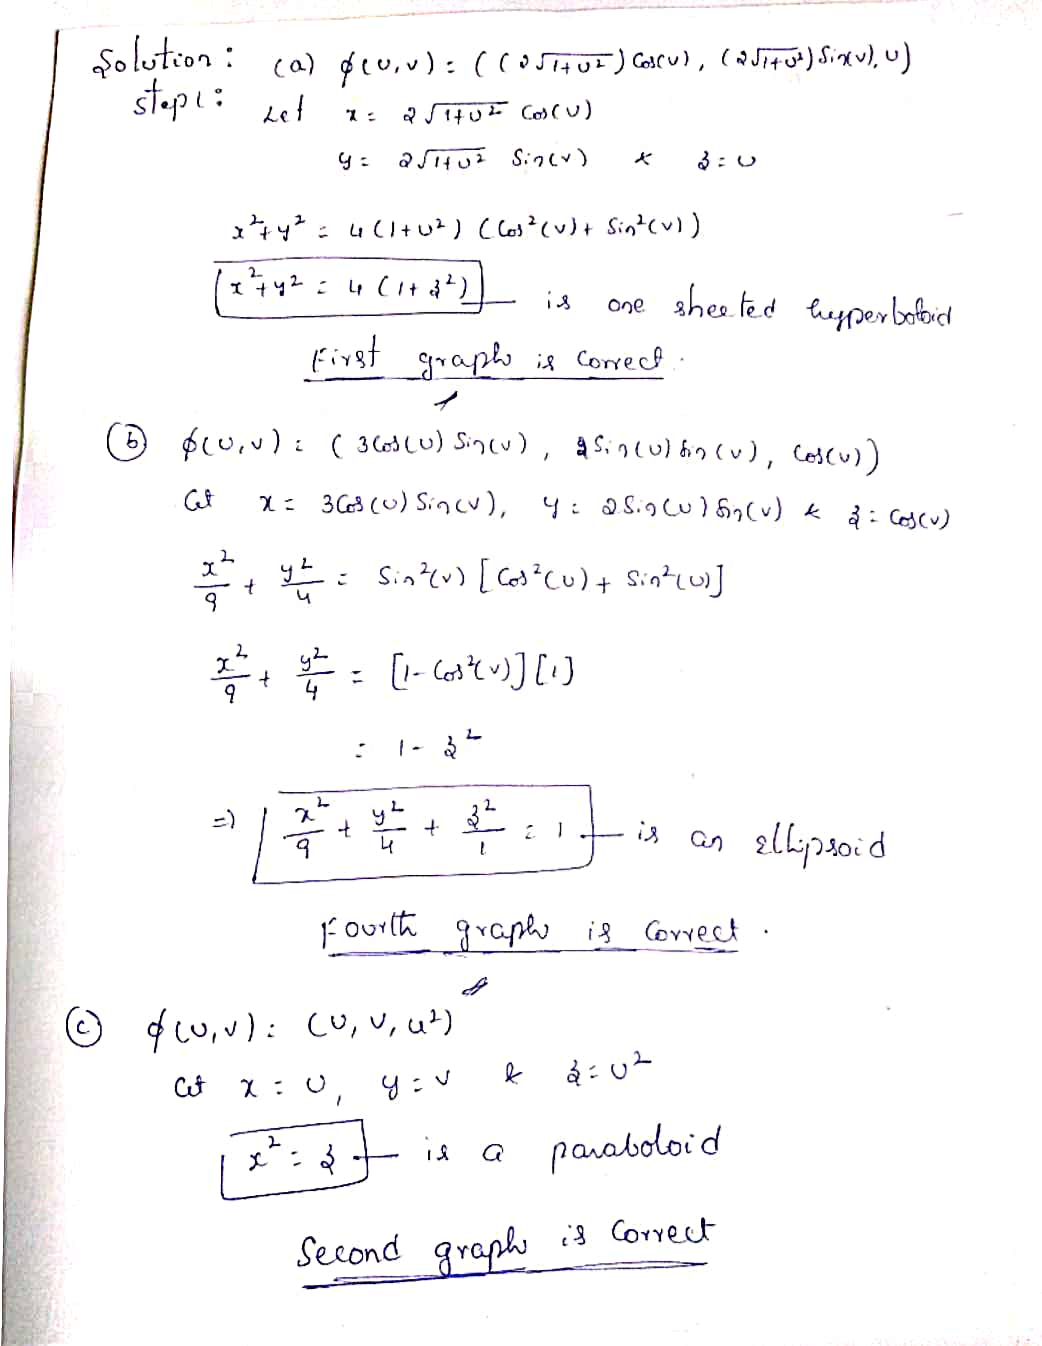 Solution: (a) φ(u,v) = ((2√1+u²) Cos(v), (2√1+u²) Sin(v), u)
step1: Let x = 2√1+u² Cos(v)
y = 2√1+u² Sin(v) & z = u
x²+y² = 4(1+u²) (Cos²(v) + Sin²(v))
x²+y² = 4(1+z²) is one sheeted hyperboloid
First graph is correct.
(b) φ(u,v) = (3Cos(u) Sin(v), 2Sin(u) Sin(v), Cos(v))
Let x = 3Cos(u) Sin(v), y = 2Sin(u) Sin(v) & z = Cos(v)
x²/9 + y²/4 = Sin²(v) [Cos²(u) + Sin²(u)]
x²/9 + y²/4 = [1-Cos²(v)] [1]
= 1 - z²
⇒ x²/9 + y²/4 + z²/1 = 1 is an ellipsoid
Fourth graph is Correct.
(c) φ(u,v) = (u, v, u²)
Let x = u, y = v & z = u²
x² = z is a paraboloid
Second graph is Correct